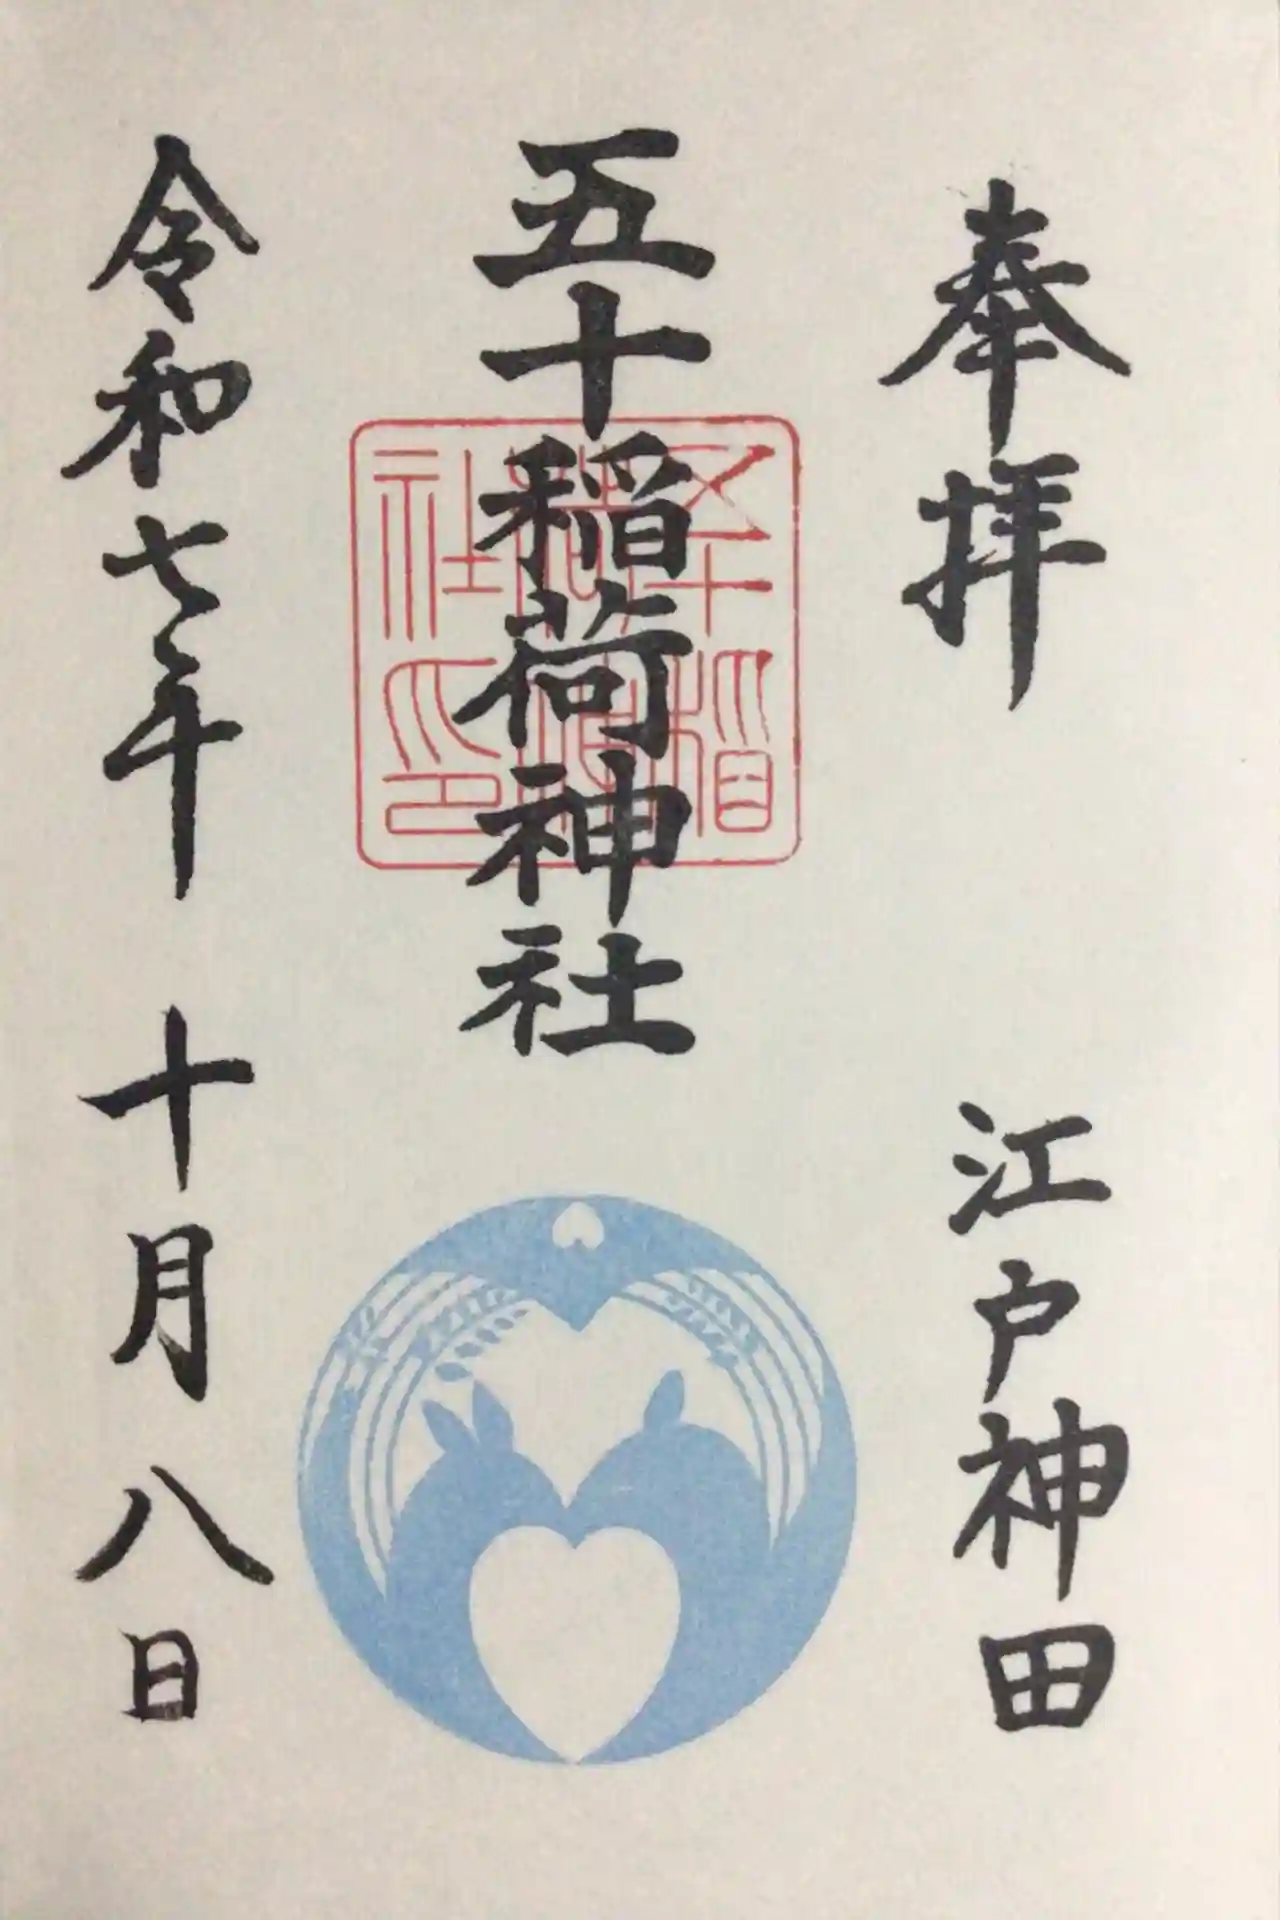 奉拝
江戸神田
五十稲荷神社
五十稲荷神社印
令和七年 十月 八日